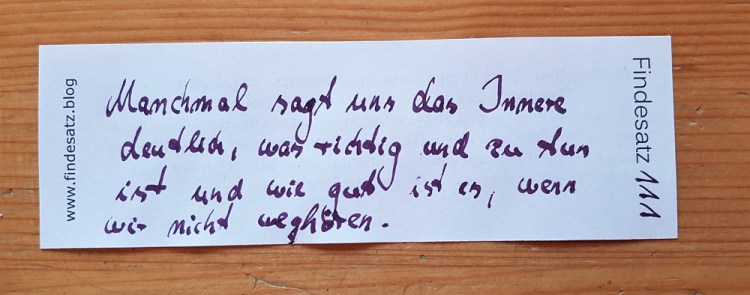 www.findesatz.blog
Manchmal sagt uns das Innere
deutlich, was richtig und zu tun
ist und wie gut ist es, wenn
wir nicht weghören.
Findesatz 111